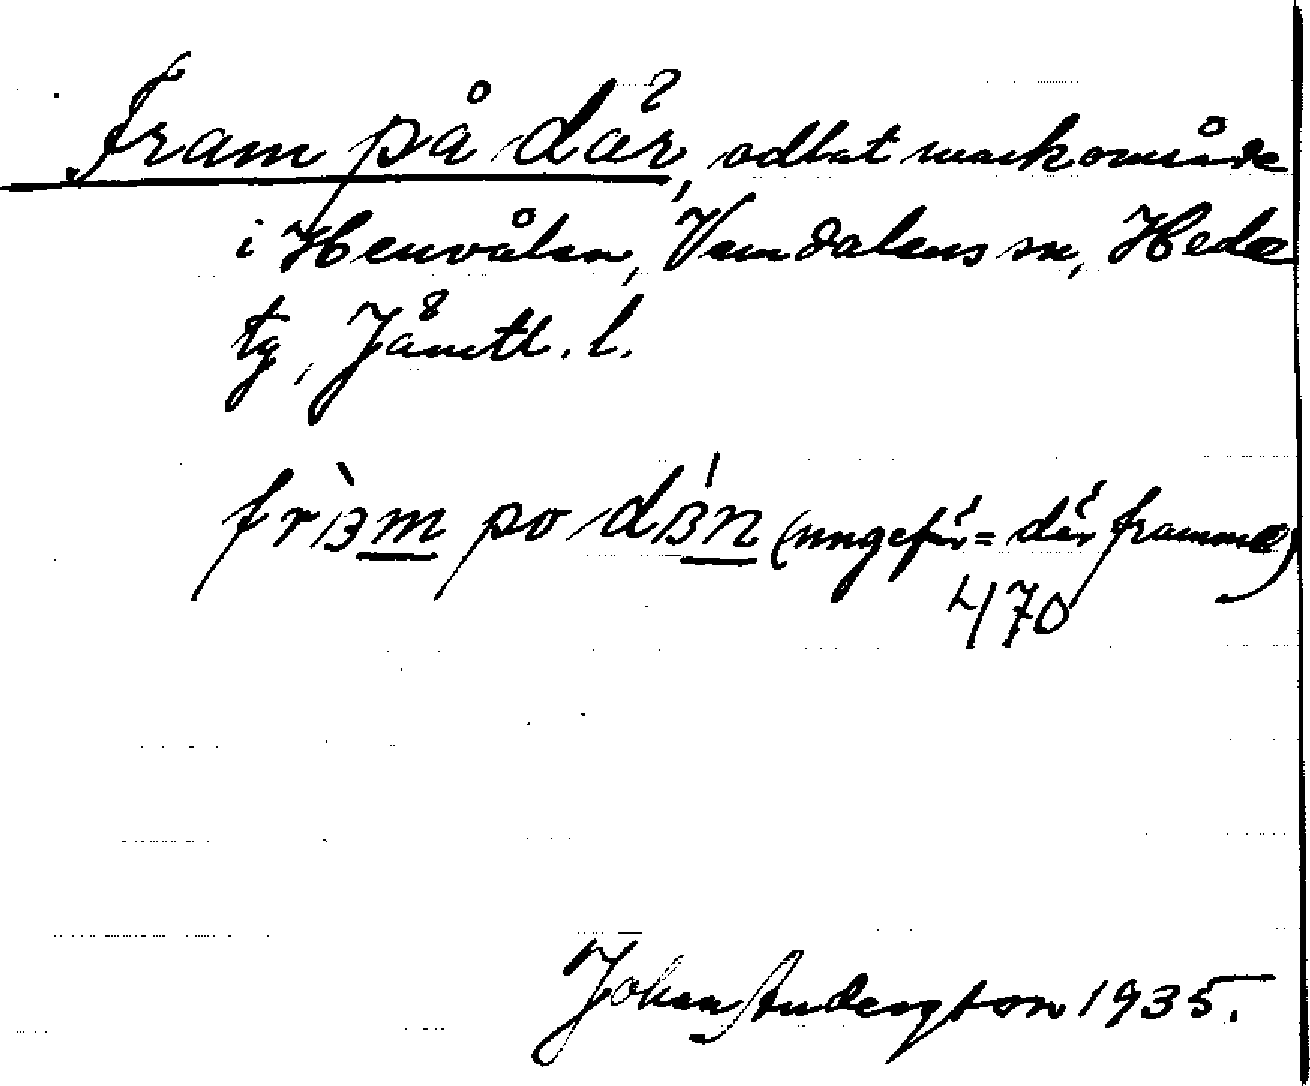 Fram på där, odlat markområde
i Henvålen, Vemdalens sn, Hede
tg, Jämtl. l.
frɜm po dɜn (ungefär = där framme)
470
Johan Andersson 1935.